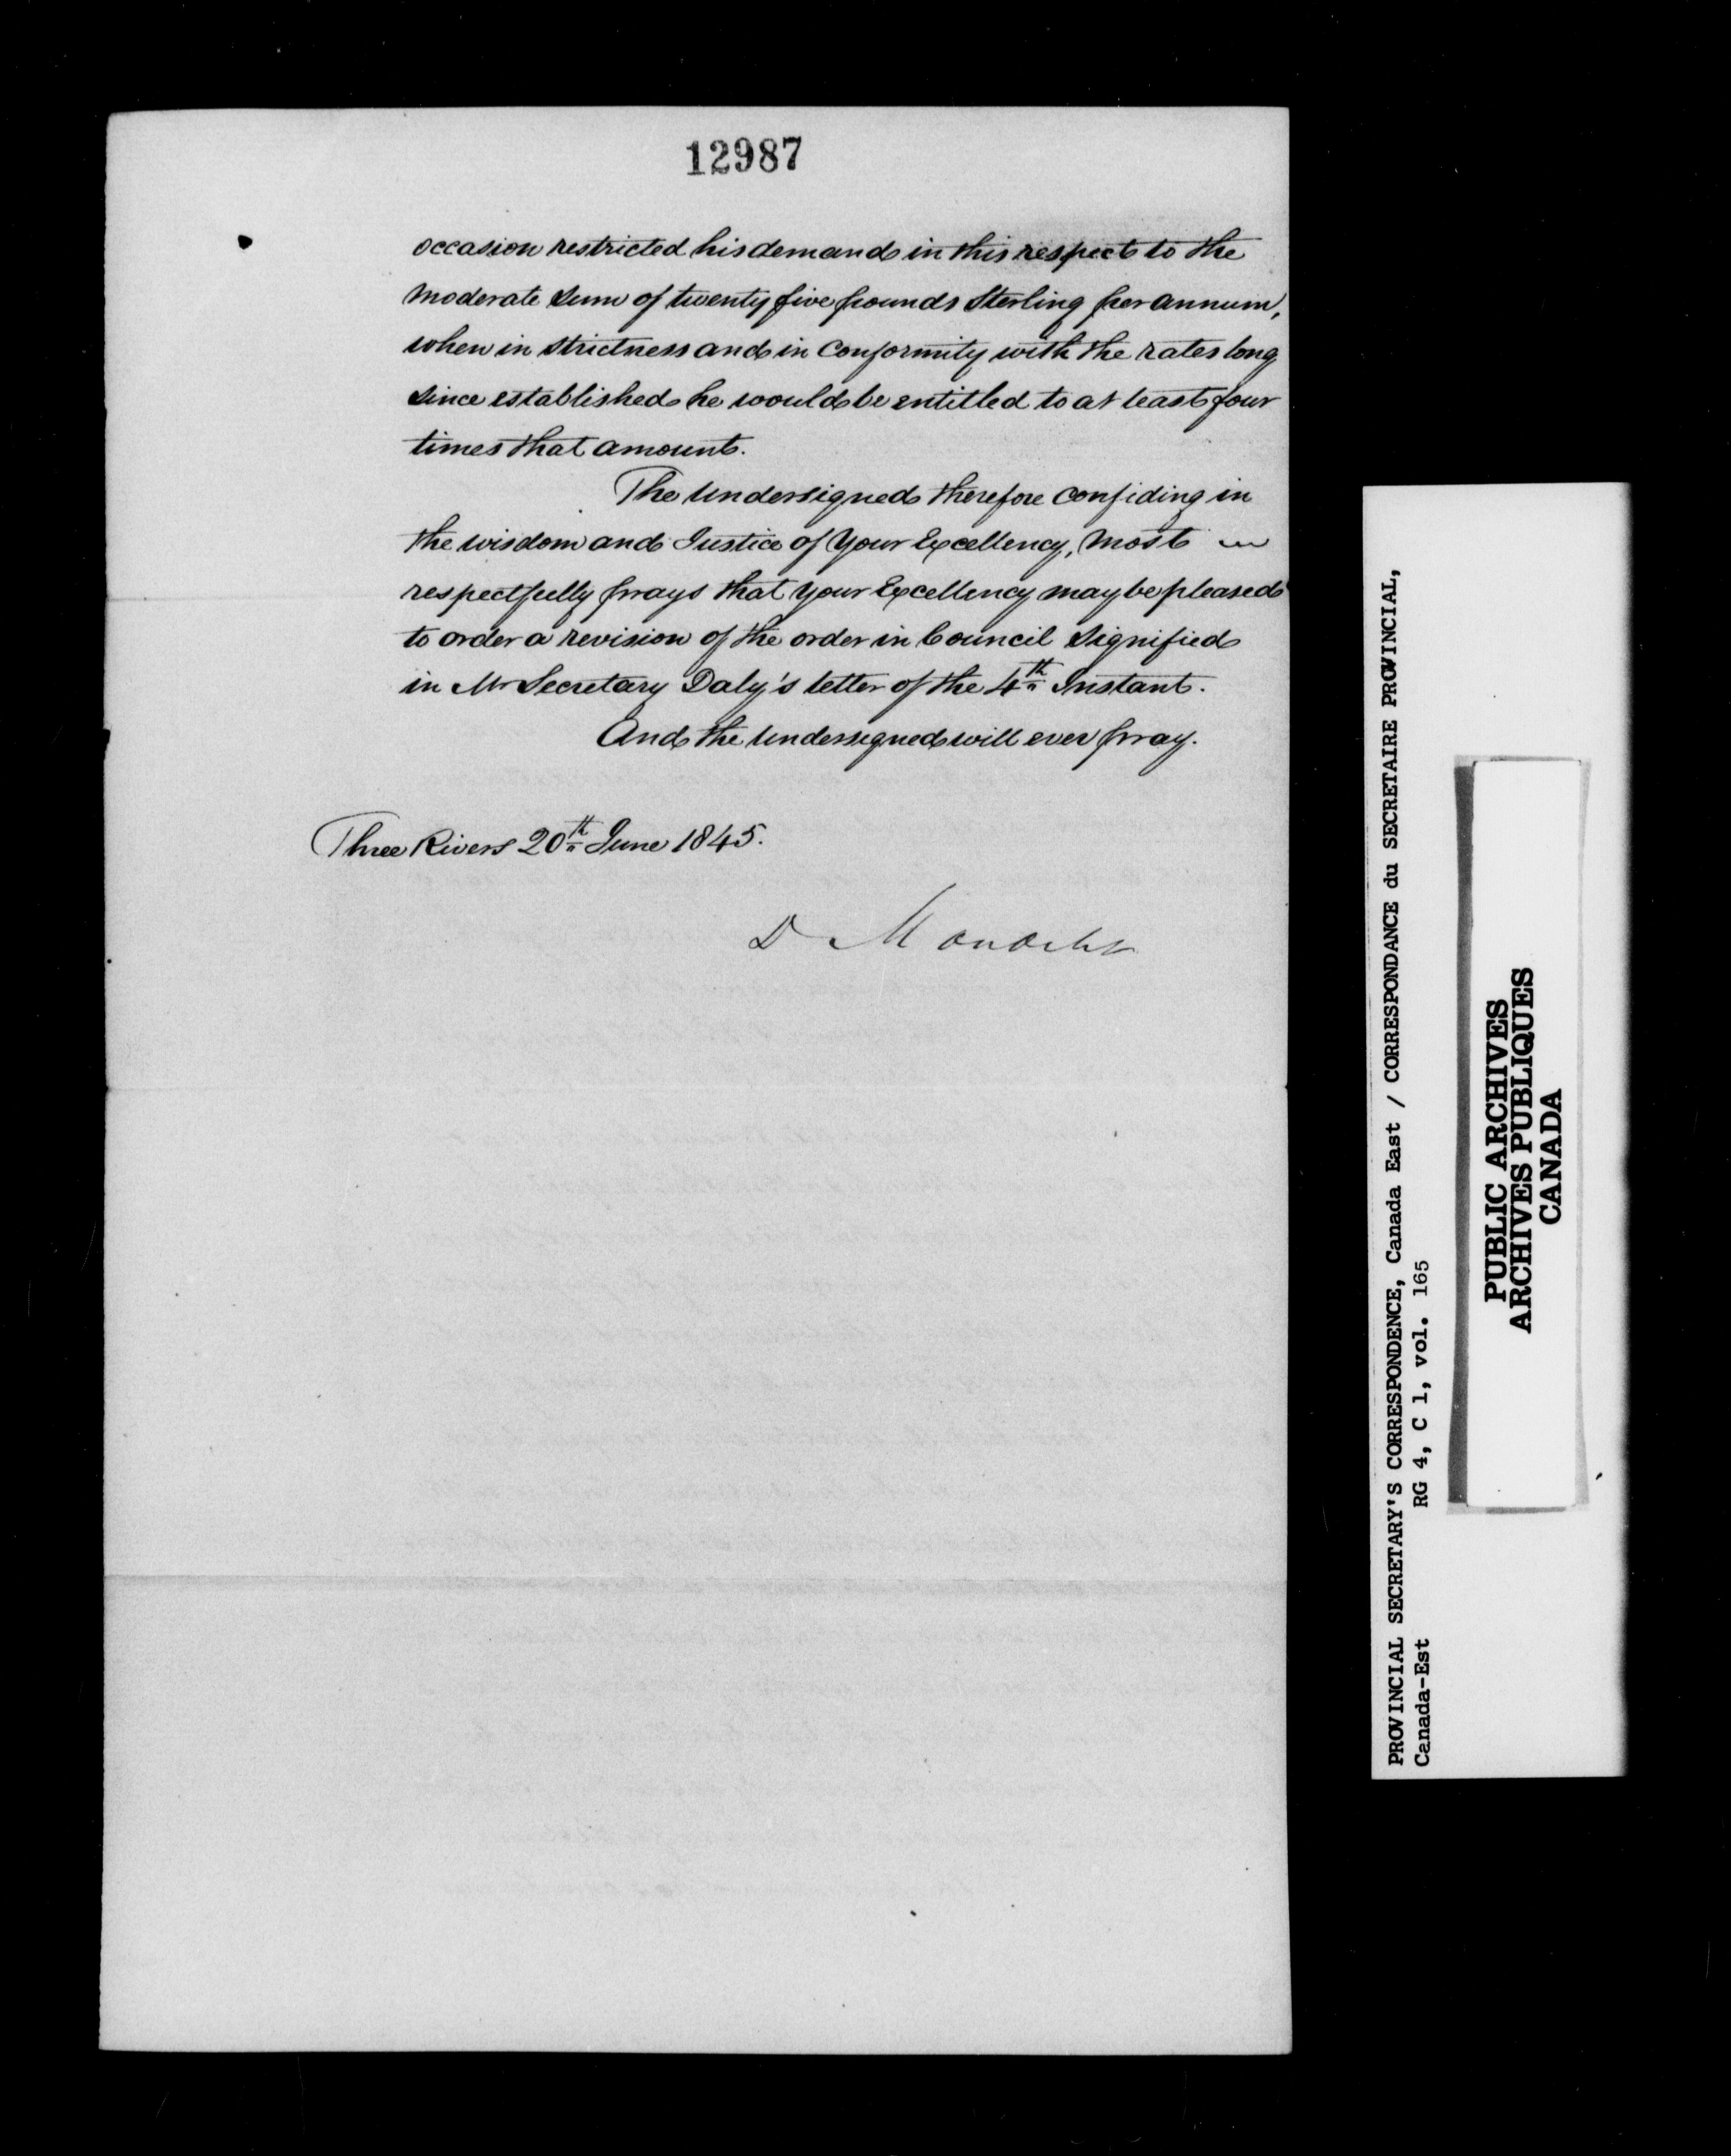 12987
occasion restricted his demand in this respect to the
moderate sum of twenty five pounds Sterling per annum,
when in strictness and in conformity with the rates long
since established he would be entitled to at least four
times that amount.
The Undersigned therefore confiding in
the wisdom and Justice of Your Excellency, most
respectfully prays that Your Excellency may be pleased
to order a revision of the order in Council signified
in Mr Secretary Daly's letter of the 4th Instant.
And the Undersigned will ever pray.
Three Rivers 20th June 1845.
D
PROVINCIAL SECRETARY'S CORRESPONDENCE, Canada East / CORRESPONDANCE du SECRETAIRE PROVINCIAL,
Canada-Est RG 4, C 1, vol. 165
PUBLIC ARCHIVES
ARCHIVES PUBLIQUES
CANADA